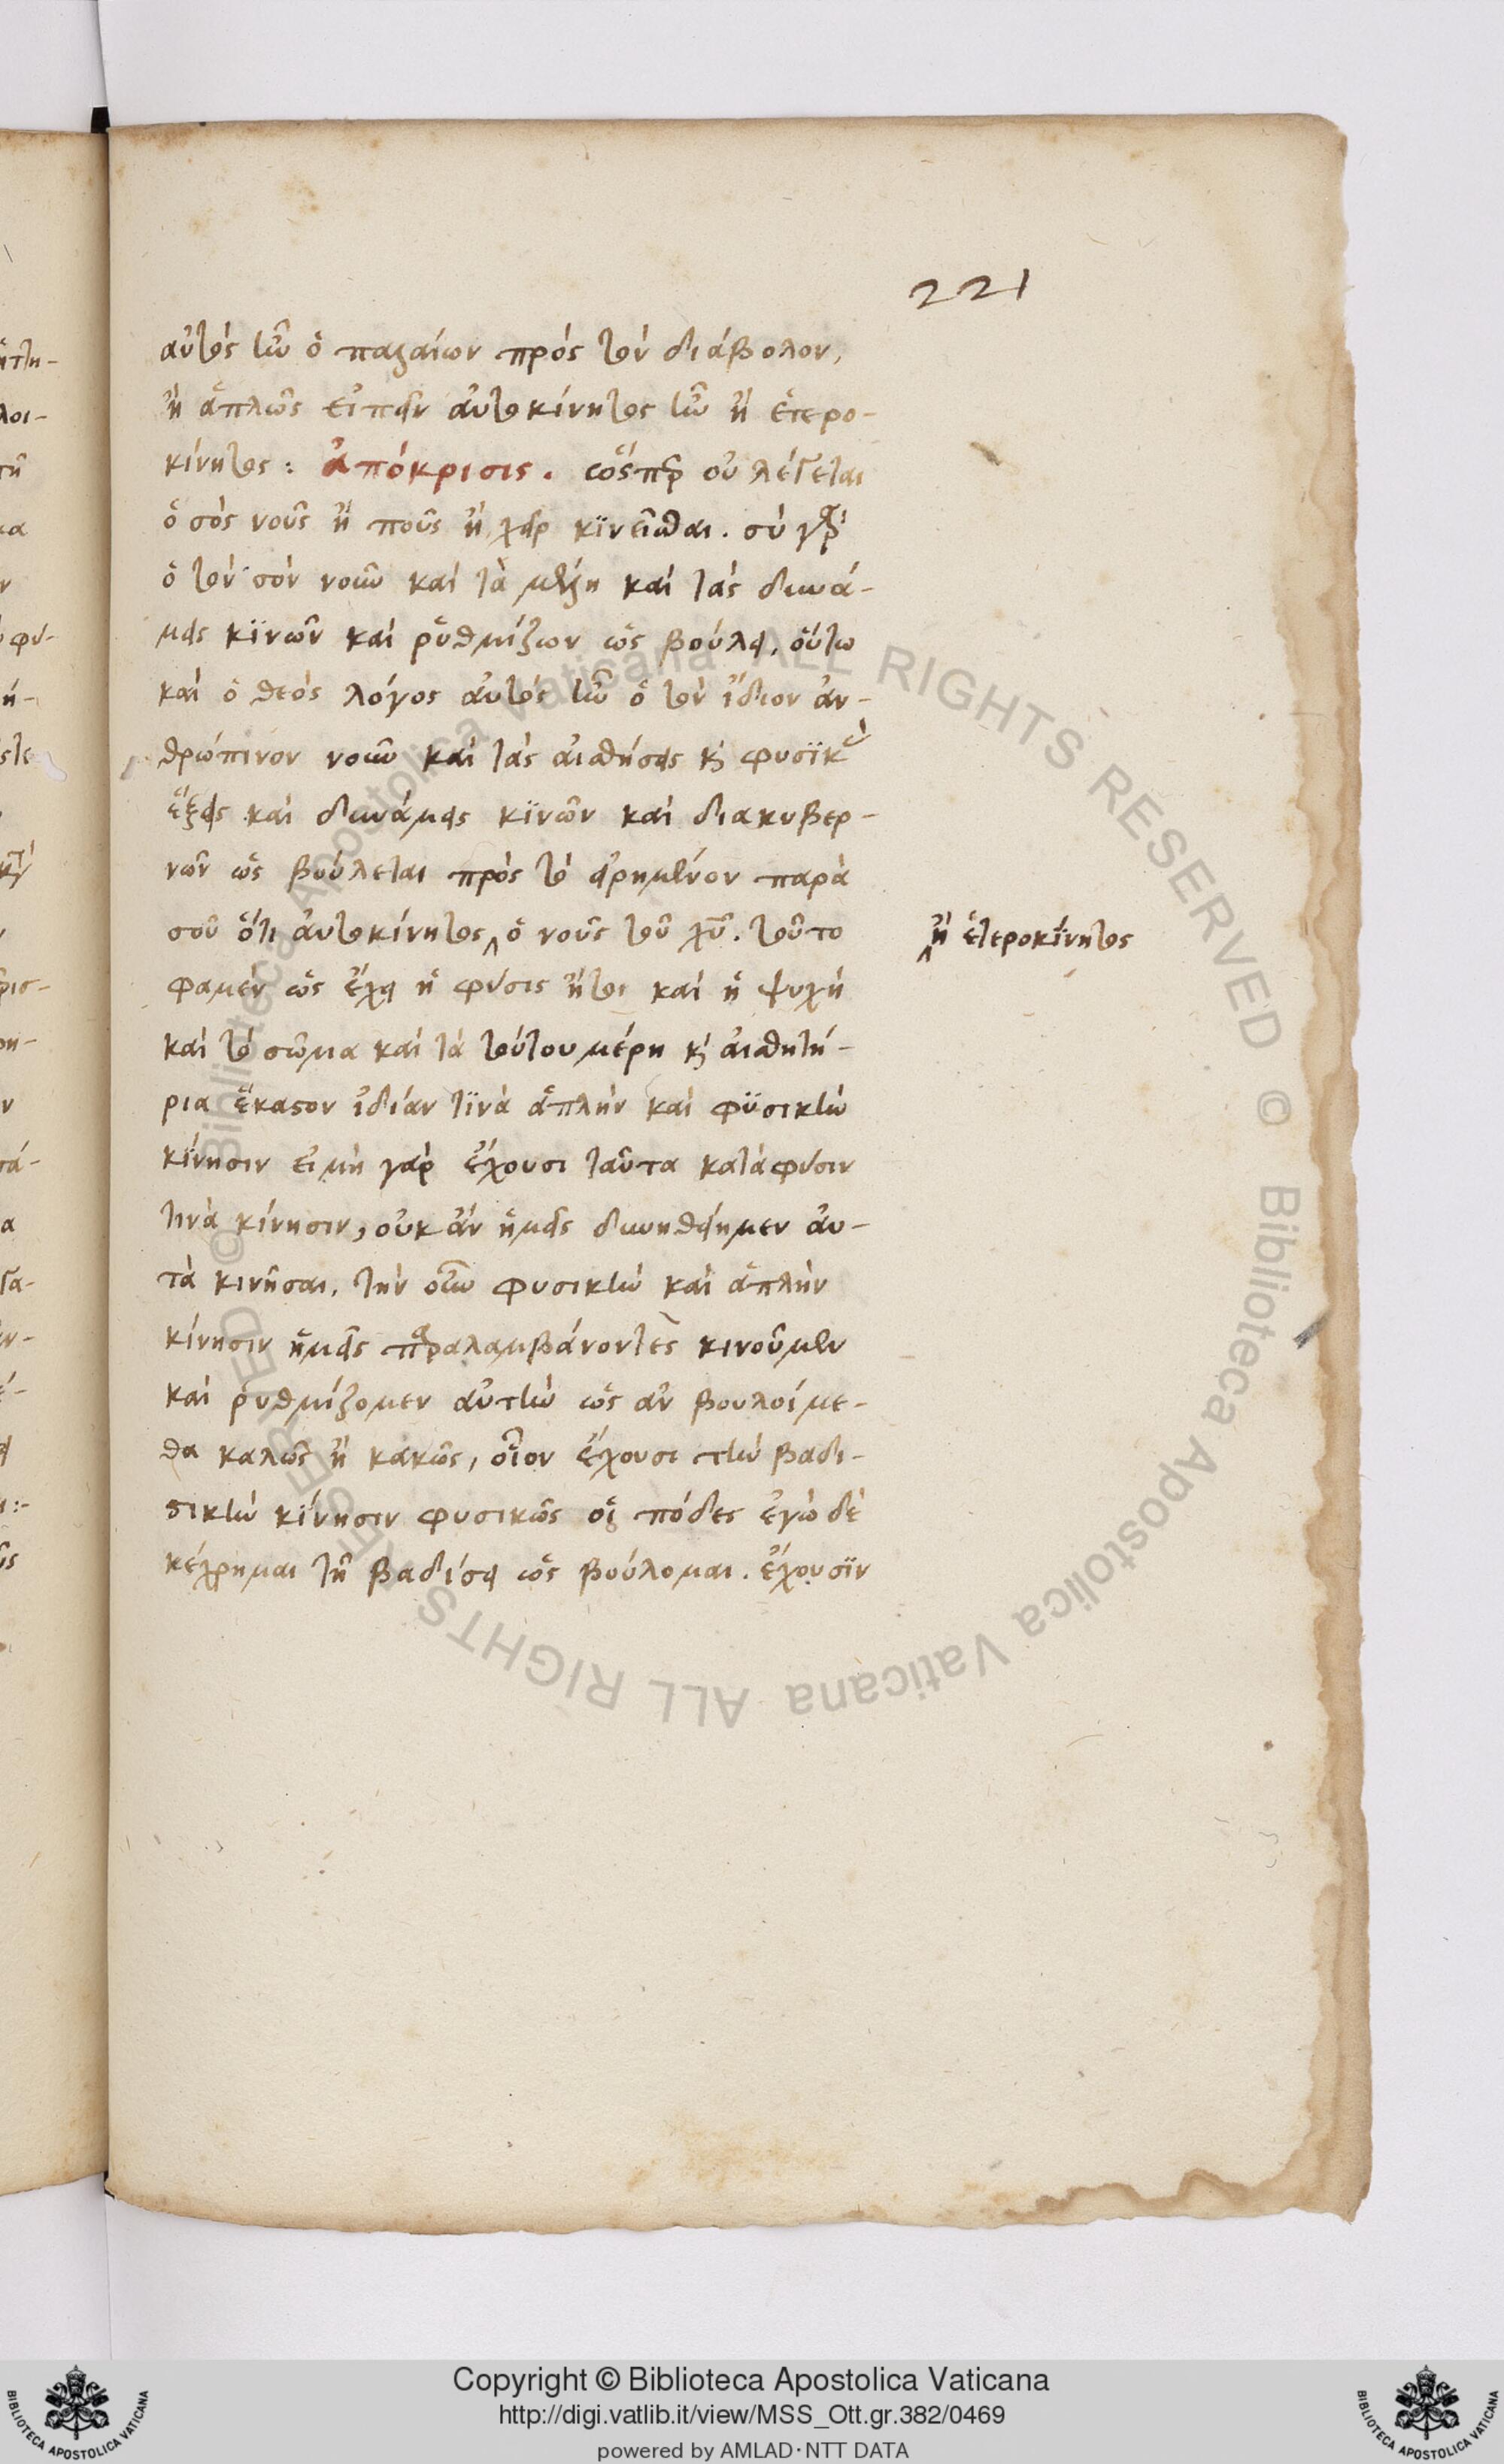 221
αὐτός ἦν ὁ παλαίων πρός τόν διάβολον,
ἢ ἁπλῶς εἰπεῖν ἀυτοκίνητος ἦν ἢ ἑτερο-
κίνητος: ἀπόκρισις. ὥσπερ οὐ λέγεται
ὁ σός νοῦς ἢ ποῦς ἢ χείρ κϊνεῖσθαι. σύ γάρ
ὁ τόν σόν νοῦν καί τὰ μέλη καί τάς δυνά-
μεις κϊνῶν καί ῥυθμίζων ὡς βούλει, οὕτω
καί ὁ θεός λόγος ἀυτός ἦν ὁ τόν ἴδιον ἀν-
θρώπινον νοῦν καί τάς αἰσθήσεις κ φυσϊκὰς
ἕξεις καί δυνάμεις κϊνῶν καί διακυβερ-
νῶν ὡς βούλεται πρός τό εἰρημένον παρὰ
σοῦ ὅτι ἀυτοκίνητος ὁ νοῦς τοῦ χυ. τοῦτο
ἢ ἑτεροκίνητος
φαμέν ὡς ἔχει ἡ φύσις ἤτοι καί ἡ ψυχή
καί τό σῶμα καί τά τούτου μέρη κ αἰσθητή-
ρια ἕκαστον ἰδίαν τϊνὰ ἁπλήν καί φϋσικήν
κίνησιν εἰμὴ γαρ ἔχουσι ταῦτα κατάφύσιν
τινὰ κίνησιν, οὐκ ἄν ἡμεῖς δυνηθείημεν ἀυ-
τὰ κινῆσαι. τήν οὖν φυσικήν καί ἁπλὴν
κίνησιν ἡμεῖς παραλαμβάνοντες κινοῦμεν
καί ῥυθμίζομεν αὐτήν ὡς αν βουλοίμε-
θα καλῶς ἢ κακῶς, οἷον ἔχουσι τήν βαδι-
στικήν κίνησιν φυσικῶς οἱ πόδες ἐγὼ δὲ
κέχρημαι τῇ βαδίσει ὡς βούλομαι. ἔχουσϊν
Copyright © Biblioteca Apostolica Vaticana
http://digi.vatlib.it/view/MSS_Ott.gr.382/0469
powered by AMLAD·NTT DATA